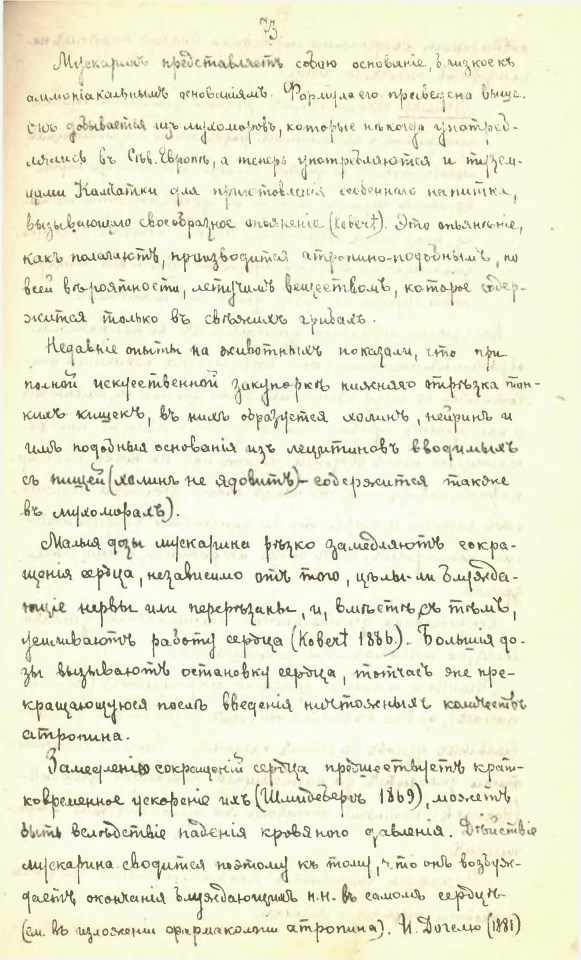 73.
Мускаринъ представляетъ собою основаніе, близкое къ
амміакальнымъ основаніямъ. Формула его приведена выше.
Онъ добывается изъ мухоморовъ, которые нѣкогда употреб-
лялись въ Сѣв. Европѣ, а теперь употребляются и тузем-
цами Камчатки для приготовленія особеннаго напитка,
вызывающаго своеобразное опьяненіе (Kobert). Это опьяненіе,
какъ полагаютъ, производится атропино-подобнымъ, по
всей вѣроятности, летучимъ веществомъ, которое содер-
жится только въ свѣжихъ грибахъ.
Недавніе опыты на животныхъ показали, что при
полной искусственной закупоркѣ нижняго отрѣзка тон-
кихъ кишекъ, въ нихъ образуется холинъ, нейринъ и
имъ подобныя основанія изъ лецитиновъ вводимыхъ
съ пищей (холинъ не ядовитъ) – содержится также
въ мухоморахъ).
Малыя дозы мускарина рѣзко замедляютъ сокра-
щенія сердца, независимо отъ того, цѣлы-ли блужда-
ющіе нервы или перерѣзаны, и, вмѣстѣ съ тѣмъ,
усиливаютъ работу сердца (Kobert 1886). Большія до-
зы вызываютъ остановку сердца, тотчасъ же пре-
кращающуюся послѣ введенія ничтожныхъ количествъ
атропина.
Замедленію сокращеній сердца предшествуетъ крат-
ковременное ускореніе ихъ (Шмидебергъ 1869), можетъ
быть вслѣдствіе паденія кровяного давленія. Дѣйствіе
мускарина сводится поэтому къ тому, что онъ возбуж-
даетъ окончанія блуждающихъ н.н. въ самомъ сердцѣ
(см. въ изложеніи фармакологіи атропина). И. Догелю (1881)